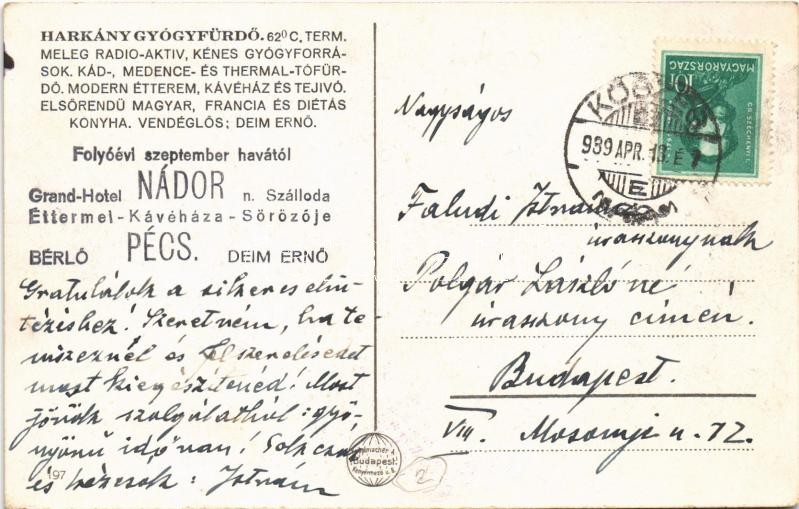 HARKÁNY GYÓGYFÜRDŐ. 62⁰ C, TERM.
MELEG RADIO-AKTIV, KÉNES GYÓGYFORRÁ-
SOK. KÁD-, MEDENCE- ÉS THERMAL-TÓFÜR-
DŐ. MODERN ÉTTEREM, KÁVÉHÁZ ÉS TEJIVÓ.
ELSŐRENDÜ MAGYAR, FRANCIA ÉS DIÉTÁS
KONYHA. VENDÉGLŐS; DEIM ERNŐ.
Folyóévi szeptember havától
Grand-Hotel NÁDOR n. Szálloda
Éttermei - Kávéháza - Sörözője
BÉRLŐ PÉCS. DEIM ERNŐ
Gratulálok a sikeres elin-
tézéshez! Szeretném, ha te
és felszerelésedet
most kiegészítenéd! Most
jövök szolgálatból: gyö-
nyörű idő van! Sok csók
és kézcsók: István
197
Budapest
2
MAGYARORSZÁG
10f
GR. SZÉCHENYI I.
KŐSZEG
939 APR. 18. É 7
E
Nagyságos
Faludi Istvánné
úrasszonynak
Polgár Lászlóné
úrasszony címén.
Budapest.
VIII. Mosonyi u. 12.